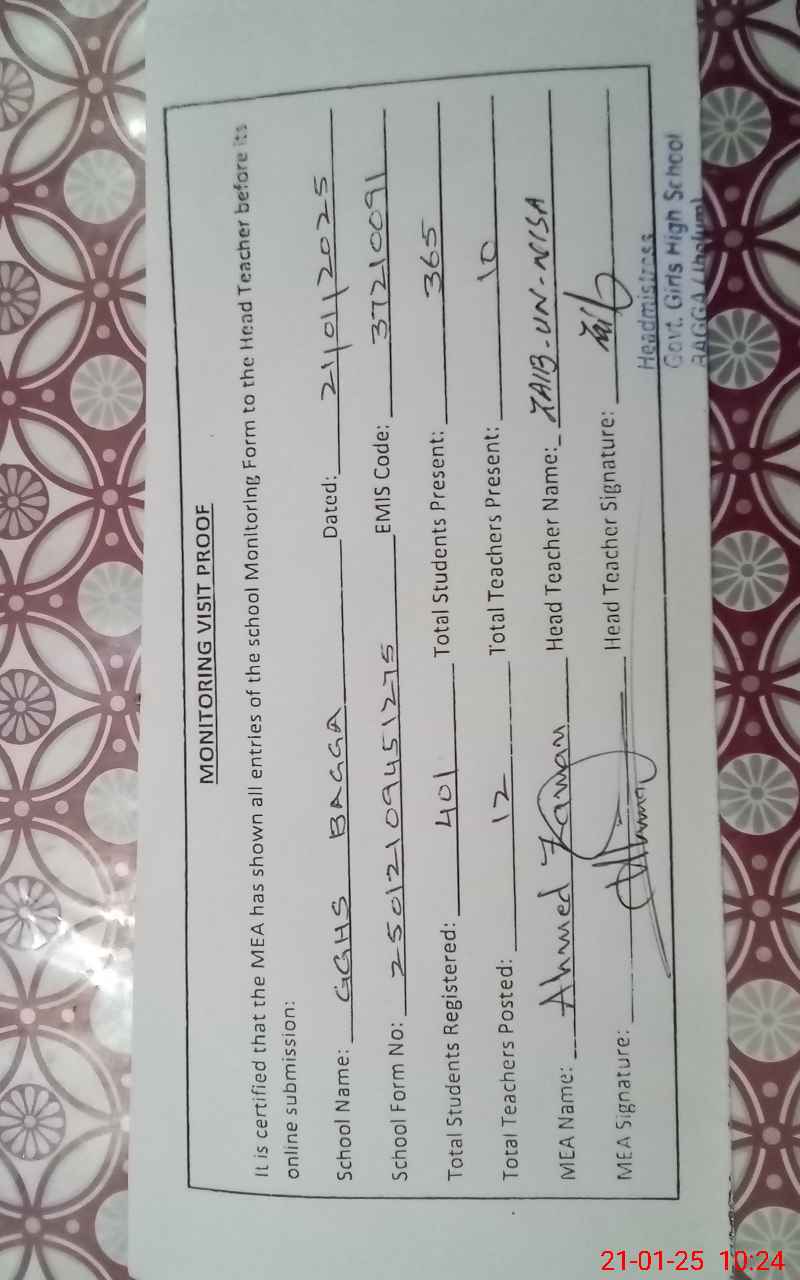 MONITORING VISIT PROOF
It is certified that the MEA has shown all entries of the school Monitoring Form to the Head Teacher before its
online submission:
School Name: GGHS BAGGA Dated: 21/01/2025
School Form No: 250121094451275 EMIS Code: 37210091
Total Students Registered: 401 Total Students Present: 365
Total Teachers Posted: 12 Total Teachers Present: 10
MEA Name: Ahmed Zaman Head Teacher Name: ZAIB-UN-NISA
MEA Signature: Head Teacher Signature:
Headmistress
Govt. Girls High School
BAGGA (Jhelum)
21-01-25 10:24